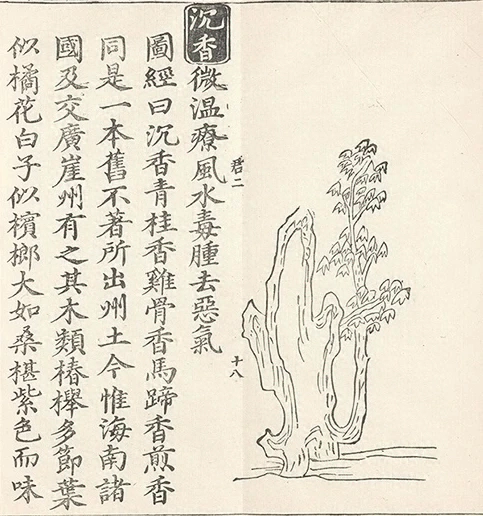 君二
十八
沉香微温療風水毒腫去惡氣
圖經曰沉香青桂香雞骨香馬蹄香煎香
同是一本舊不著所出州土今惟海南諸
國及交廣崖州有之其木類椿櫸多節葉
似橘花白子似檳榔大如桑椹紫色而味